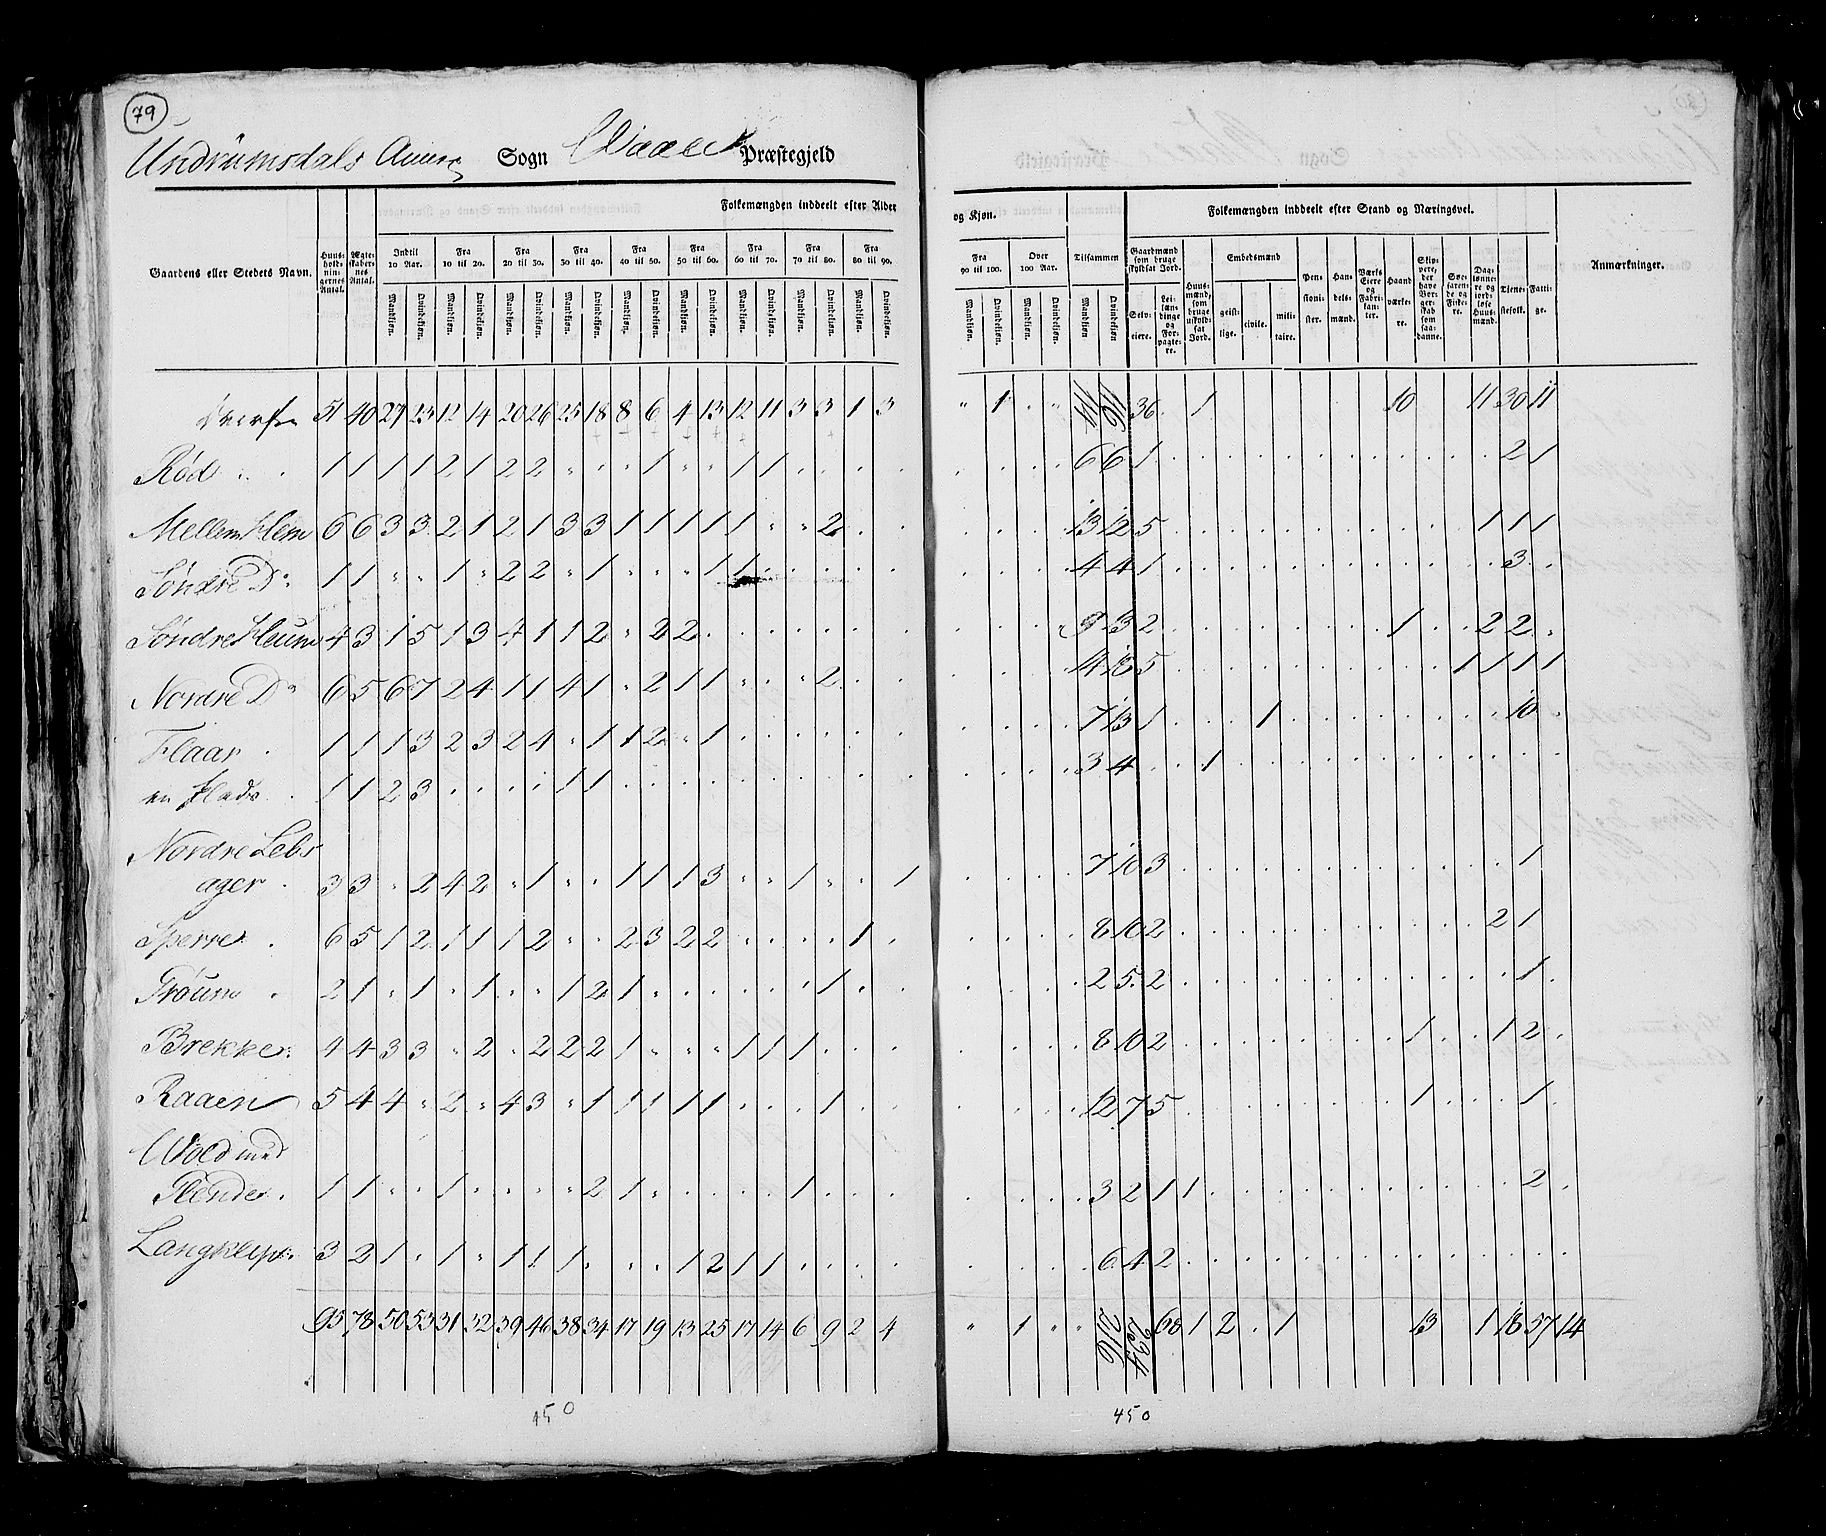 79
Undrumsdals Annex Sogn Vaale Præstegjeld
Folkemængden inddeelt efter Alder og Kjøn. Folkemængden inddeelt efter Stand og Næringsvei.
Gaardens eller Stedets Navn. Huusholdningernes Antal. Ægteskabernes Antal. Indtil 10 Aar. Fra 10 til 20. Fra 20 til 30. Fra 30 til 40. Fra 40 til 50. Fra 50 til 60. Fra 60 til 70. Fra 70 til 80. Fra 80 til 90. Fra 90 til 100. Over 100 Aar. Tilsammen Gaardmænd som bruge skyldsat Jord. Huusmænd, som bruge uskyldsat Jord. Embedsmænd Pensionister. Handelsmænd. Værks Eiere og Fabrikanter. Haandværkere. Skippere, der have Borgerskab som saadanne. Søefarende og Fiskere. Daglønnere og jordløse Huusmænd. Tjenestefolk. Fattige. Anmærkninger.
Mandkjøn. Qvindekjøn. Mandkjøn. Qvindekjøn. Mandkjøn. Qvindekjøn. Mandkjøn. Qvindekjøn. Mandkjøn. Qvindekjøn. Mandkjøn. Qvindekjøn. Mandkjøn. Qvindekjøn. Mandkjøn. Qvindekjøn. Mandkjøn. Qvindekjøn. Mandkjøn. Qvindekjøn. Mandkjøn. Qvindekjøn. Mandkjøn Qvindekjøn Selveiere. Leilændinge og Forpagtere. geistlige. civile. militaire.
51 40 27 23 12 14 20 26 25 18 8 6 4 13 12 11 3 3 1 3 " 1 . " 36 . 1 10 11 30 11
Rød . . 1 1 1 1 2 1 2 2 " . . 1 . . 1 1 . . . . 6 6 1 2 1
Mellem Hem 6 6 3 3 2 1 2 1 3 3 1 1 1 1 1 " " 2 . . 13 12 5 1 1 1
Søndre Do 1 1 " " 1 " 2 2 " 1 . . . 1 1 . . . . . 4 4 1 3 .
Søndre Heum 4 3 1 5 1 3 4 1 1 2 " 2 2 . . . . . . . 9 13 2 1 2 2 .
Nordre Do 6 5 6 7 2 4 1 1 4 1 " 2 1 1 . . . 2 . . 14 18 5 1 1 1 1
Flaar . 1 1 1 3 2 3 2 4 " 1 1 2 " 1 . . . . . . 7 13 1 1 10 .
en Plads . 1 1 2 3 . . . . 1 1 . . . . . . . . . . 3 4 . . 1
Nordre Lebs
ager . 3 3 " 2 4 2 " 1 . . 1 1 1 3 " " 1 . . 1 7 10 3 1
Sperre . 6 5 1 2 1 1 1 2 . . 2 3 2 2 . . . . 1 . 8 10 2 2 1
2 1 " 1 . 1 . . 1 2 1 . . . . . . 1 . . 2 5 2 1 .
Brekke . 4 4 3 3 " 2 " 2 2 2 1 . . . 1 1 1 . . . 8 10 2 1 1 2 .
Raaen 5 4 4 " 2 " 4 3 " 1 1 1 1 1 . . . 1 . . 12 7 5 1 1 .
Wold med
1 1 " " 1 . . . . 2 1 . . . . . 1 . . . 3 2 1 1 2 .
3 2 1 " 1 " 1 1 1 . . . 1 2 1 1 . . . . 6 4 2
95 78 50 53 31 32 39 46 38 34 17 19 13 25 17 14 6 9 2 4 " 1 " " 216 234 68 1 2 . 1 13 1 18 57 14
450 450